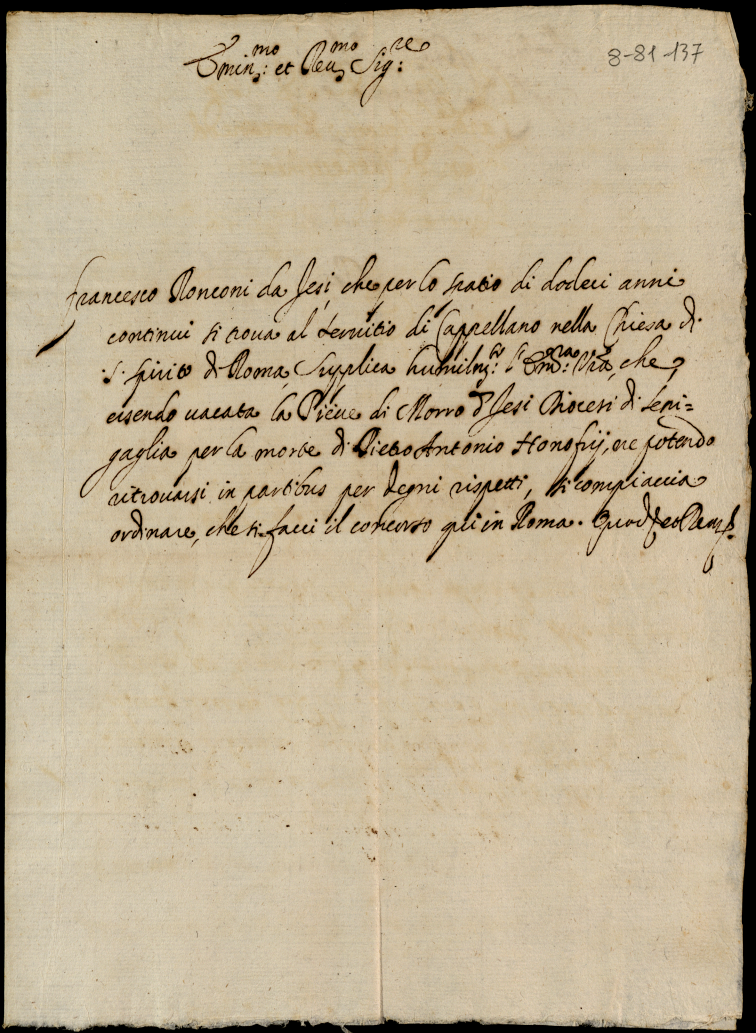 Emin.mo et Reu.mo Sig.re
8-81-137
Francesco Ronconi da Jesi, che per lo spatio di dodeci anni
continui si troua al seruitio di Cappellano nella Chiesa di
S. Spirito di Roma, Supplica humilm.te l'Em.za V.ra, che
essendo uacata la Pieue di Morro di Jesi Diocesi di Seni=
gaglia per la morte di Pietro Antonio Honofrij, ne potendo
ritrouarsi in partibus per degni rispetti, si compiaccia
ordinare, che si facci il concorso qui in Roma. Quod